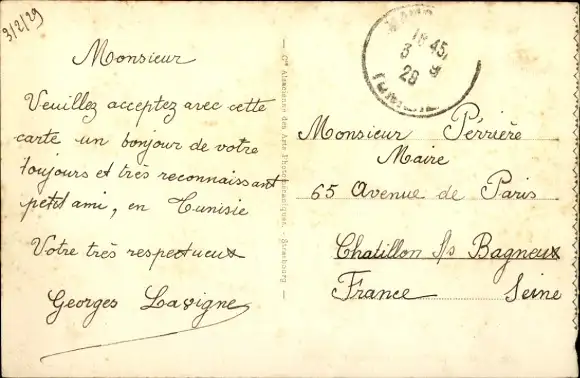 3/2/29
Monsieur
Veuillez acceptez avec cette
carte un bonjour de votre
toujours et très reconnaissant
petit ami, en Tunisie
Votre très respectueux
Georges Lavigne
— Cie Alsacienne des Arts Photomécaniques. - Strasbourg —
18 45
3
29
Monsieur Perrière
Maire
65 Avenue de Paris
Chatillon s/s Bagneux
France Seine